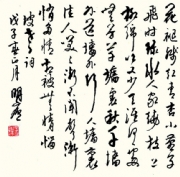 花褪残红青杏小燕子
飛時绿水人家绕枝上
柳绵吹又少天涯何處
無芳草墙裏秋千墙
外道墙外行人墙裏
佳人笑笑渐不闻聲渐
悄多情却被無情惱
坡老词
戊子年正月 明